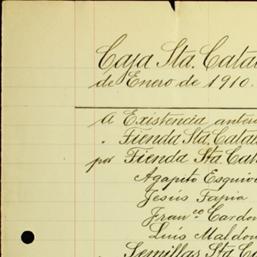 Caja Sta. Catal
de Enero de 1910.
A Existencia anteri
" Tienda Sta. Catal
por Tienda Sta Cat
Agapito Esquiv
Jesús Tapia
Fran.co Cardon
Luis Maldon
" Semillas Sta Ca